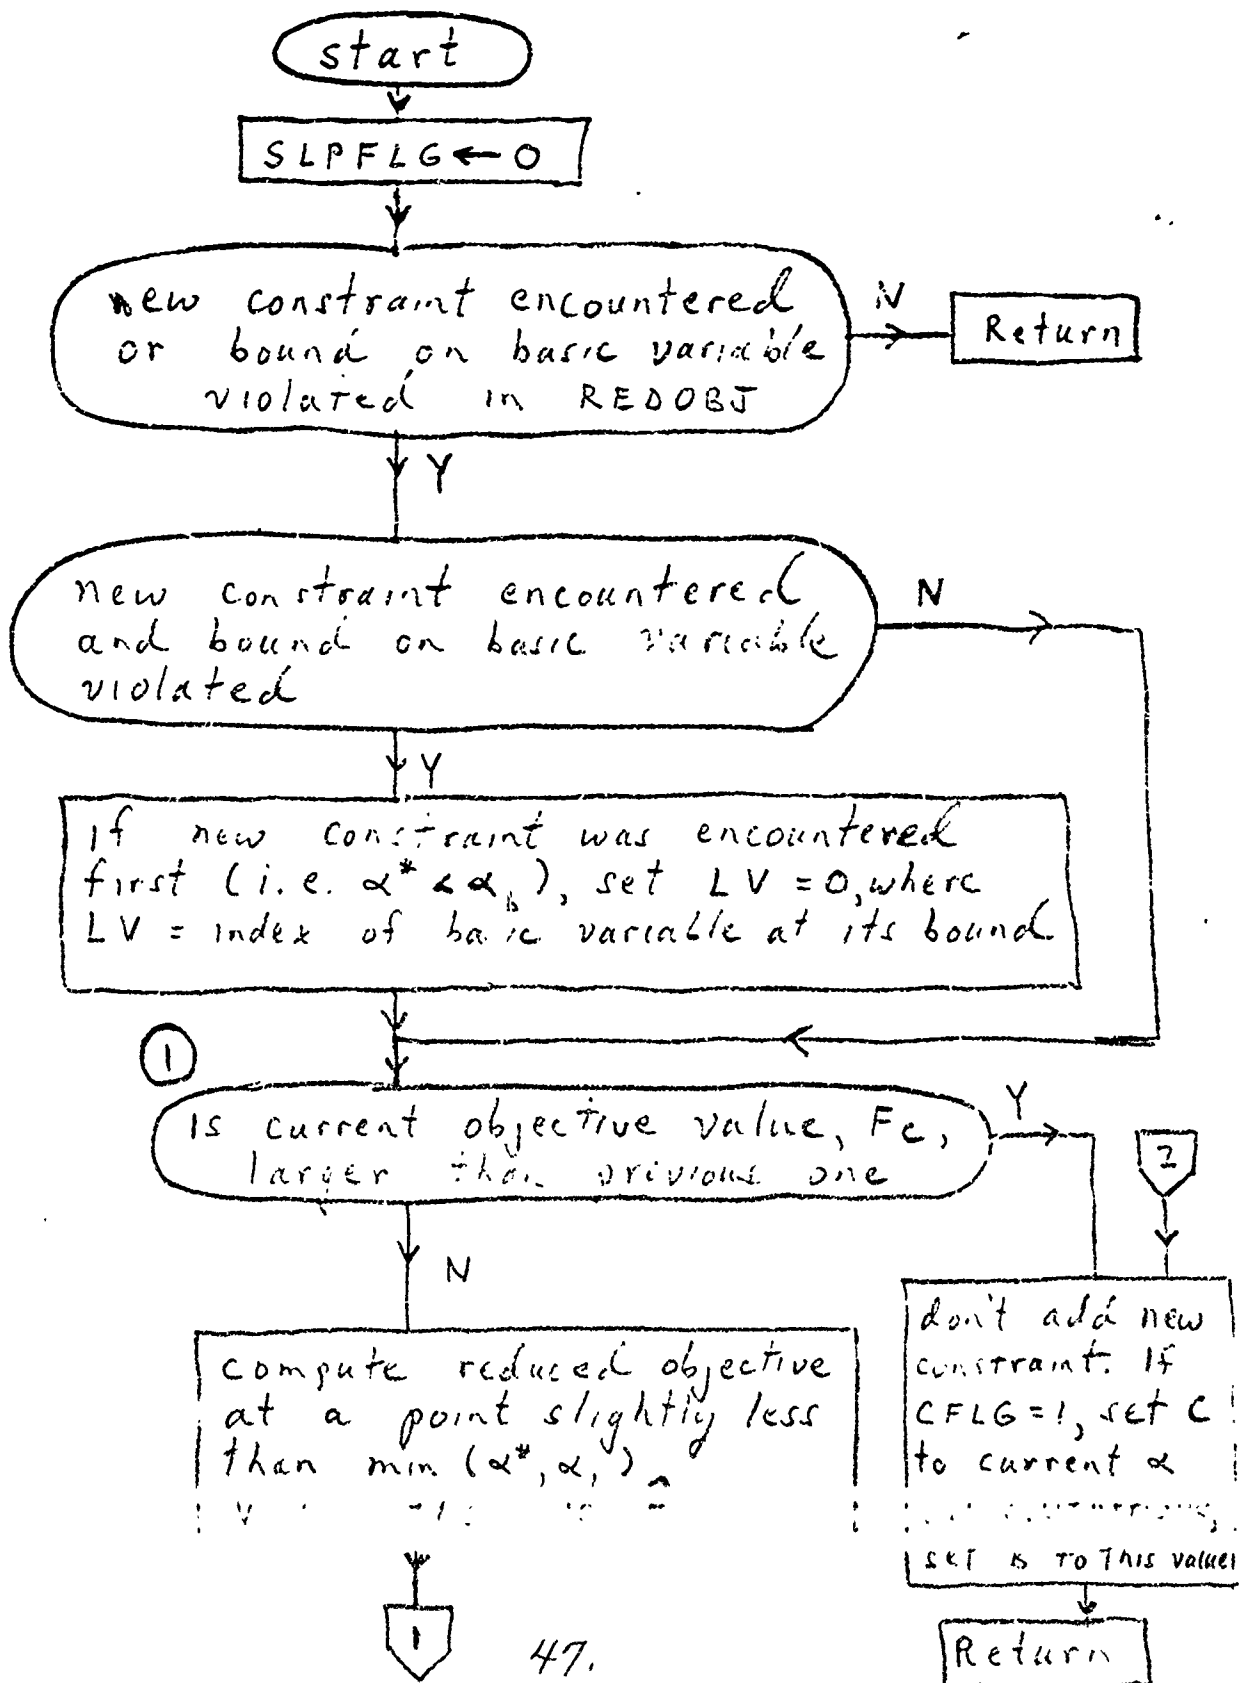 start
SLPFLG ← 0
new constraint encountered
or bound on basic variable
violated in REDOBJ
N
Return
Y
new constraint encountered
and bound on basic variable
violated
N
Y
If new constraint was encountered
first (i.e. α* < α_b), set LV = 0, where
LV = index of basic variable at its bound
1
Is current objective value, Fc,
larger than previous one
Y
2
N
compute reduced objective
at a point slightly less
than min (α*,
don't add new
constraint. If
CFLG=1, set C
to current α
set B to this value
1
Return
47.